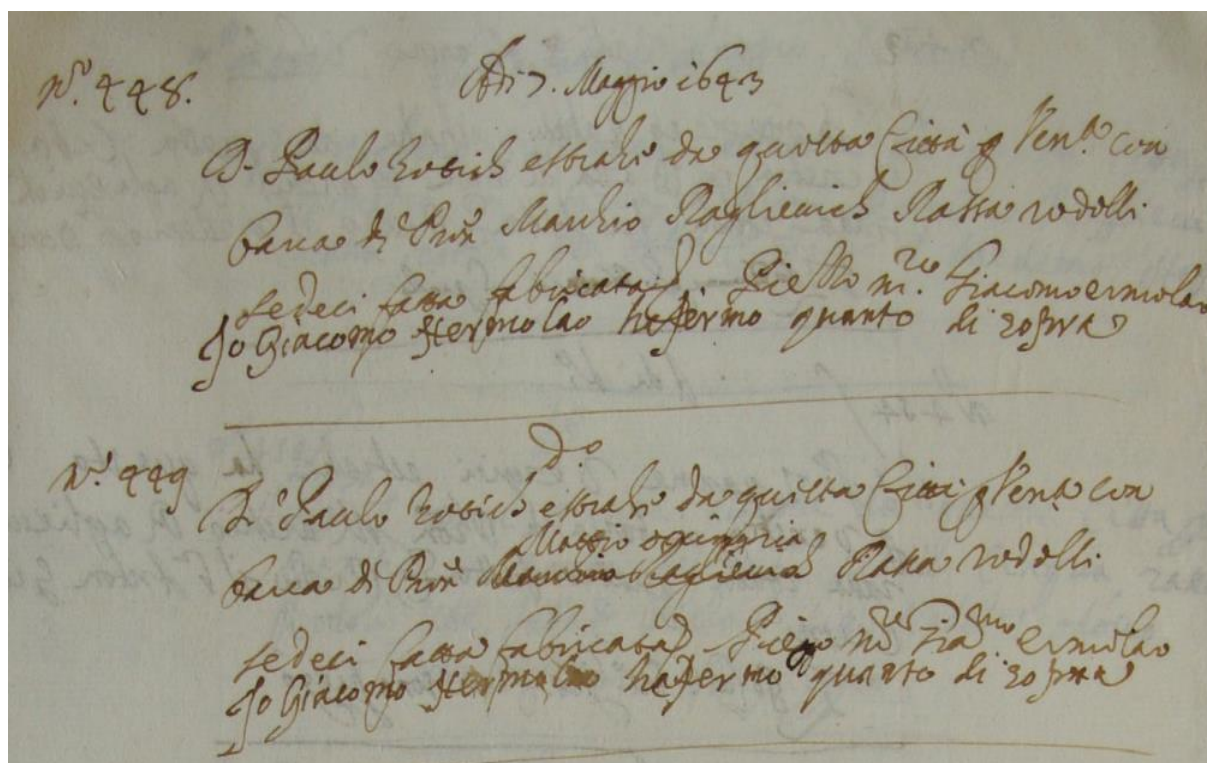 N.º 448.
Adi 7. Maggio 1643
D. Paulo Rosich estrahe da questa Città p Ven.ª con
barca di Prõn Marchio Raglievich Rassa rodolli
sedeci fatta fabricata p. Piero m.ro Giacomo ermolao
Jo Giacomo Hermolao hafermo quanto di sopra
N.º 449
D.º
D. Paulo Rosich estrahe da questa Città p Ven.ª con
Mattio
barca di Prõn Rassa rodolli
sedeci fatta fabricata p Piero m.ro Gia.mo ermolao
Jo Giacomo Hermolao hafermo quanto di sopra